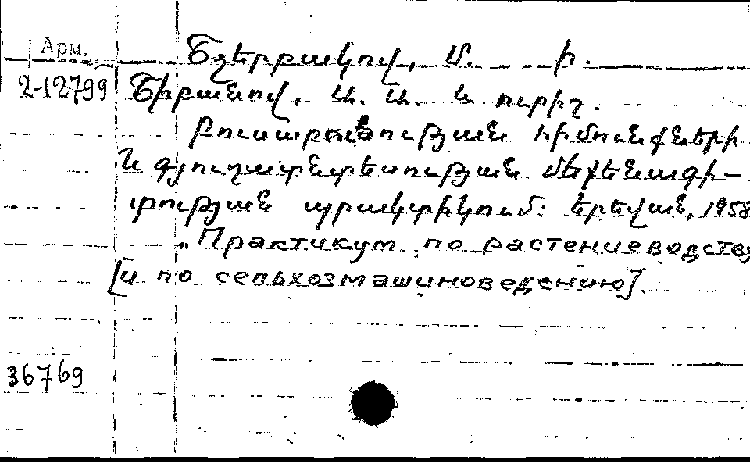 Арм.
2-12799
Շչերբակով, Մ. Ի.
Ծիբանով, Ա. Ա. և ուրիշ.
Բուսաբուծության հիմունքների
և գյուղատնտեսության մեքենագի-
տության պրակտիկում: Երևան, 1958
"Практикум по растениеводству
[и по сельхозмашиноведению].
36769